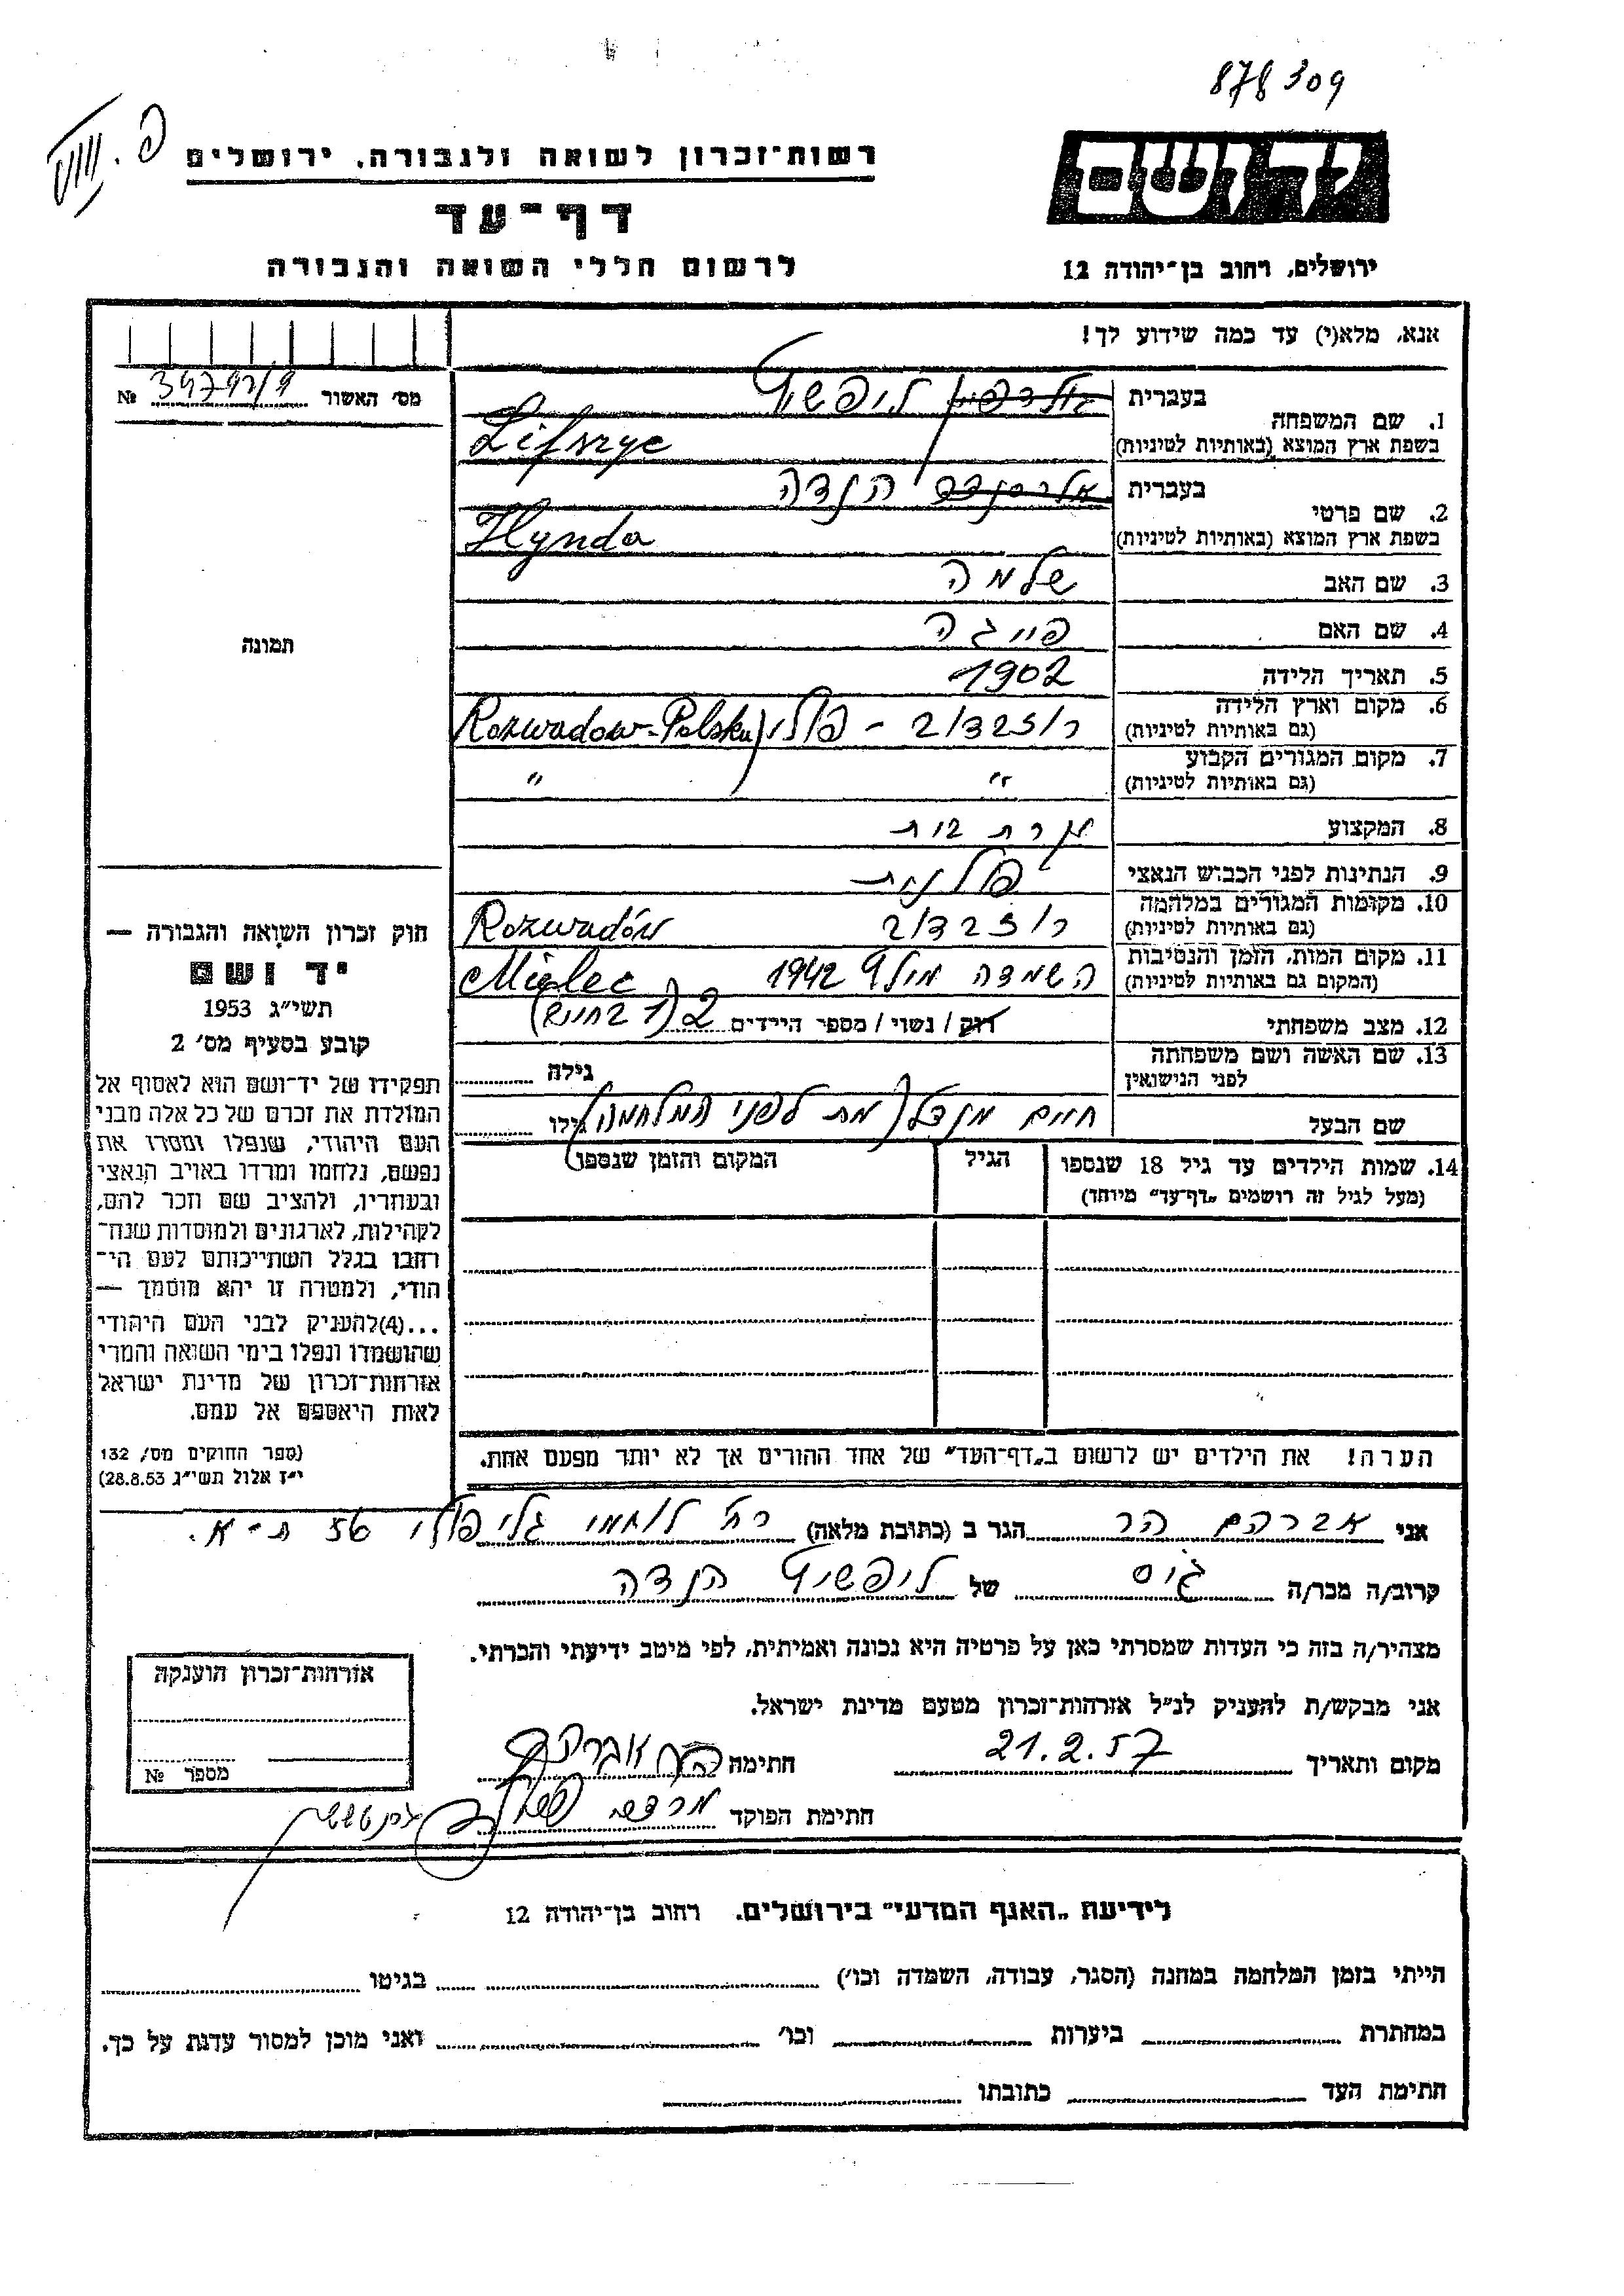 878309
פ.
רשות־זכרון לשואה ולגבורה, ירושלים
דף־עד
לרשום חללי השואה והגבורה
יד ושם
ירושלים, רחוב בן־יהודה 12
אנא, מלא(י) עד כמה שידוע לך!
מס׳ האשור 34797/9 №
1. שם המשפחה
בעברית ליפשיץ
בשפת ארץ המוצא (באותיות לטיניות) Lifszyc
2. שם פרטי
בעברית הנדה
בשפת ארץ המוצא (באותיות לטיניות) Hynda
3. שם האב שלמה
4. שם האם פייגה
5. תאריך הלידה 1902
6. מקום וארץ הלידה
(גם באותיות לטיניות) רוזבדוב - פולין Rozwadow-Polska
7. מקום המגורים הקבוע
(גם באותיות לטיניות) " "
8. המקצוע עקרת בית
9. הנתינות לפני הכבוש הנאצי פולנית
10. מקומות המגורים במלחמה
(גם באותיות לטיניות) רוזבדוב Rozwadów
11. מקום המות, הזמן והנסיבות
(המקום גם באותיות לטיניות) השמדה 1942 Mielec
12. מצב משפחתי רוק / נשוי / מספר הילדים 2 (1 בחיים)
13. שם האשה ושם משפחתה
לפני הנישואין גילה
שם הבעל חיים מנדל (מת לפני המלחמה) גילו
14. שמות הילדים עד גיל 18 שנספו
(מעל לגיל זה רושמים „דף־עד״ מיוחד)
הגיל
המקום והזמן שנספו
הערה! את הילדים יש לרשום ב„דף־העד״ של אחד ההורים אך לא יותר מפעם אחת.
תמונה
חוק זכרון השואה והגבורה —
יד ושם
תשי״ג 1953
קובע בסעיף מס׳ 2
תפקידו של יד־ושם הוא לאסוף אל
המולדת את זכרם של כל אלה מבני
העם היהודי, שנפלו ומסרו את
נפשם, נלחמו ומרדו באויב הנאצי
ובעוזריו, ולהציב שם וזכר להם,
לקהילות, לארגונים ולמוסדות שנח־
רבו בגלל השתייכותם לעם הי־
הודי, ולמטרה זו יהא מוסמך —
...(4)להעניק לבני העם היהודי
שהושמדו ונפלו בימי השואה והמרי
אזרחות־זכרון של מדינת ישראל
לאות היאספם אל עמם.
(ספר החוקים מס׳, 132
י״ז אלול תשי״ג 28.8.53)
אני אברהם הר הגר ב (כתובת מלאה) רח׳ לוחמי גליפולי 56 ת-א.
קרוב/ה מכר/ה גיס של ליפשיץ הנדה
מצהיר/ה בזה כי העדות שמסרתי כאן על פרטיה היא נכונה ואמיתית, לפי מיטב ידיעתי והכרתי.
אני מבקש/ת להעניק לנ״ל אזרחות־זכרון מטעם מדינת ישראל.
מקום ותאריך 21.2.57 חתימה הר אברהם
חתימת הפוקד
אזרחות־זכרון הוענקה
מספר №
לידיעת „האגף המדעי״ בירושלים, רחוב בן־יהודה 12
הייתי בזמן המלחמה במחנה (הסגר, עבודה, השמדה וכו׳) בגיטו
במחתרת ביערות וכו׳ ואני מוכן למסור עדות על כך.
חתימת העד כתובתו